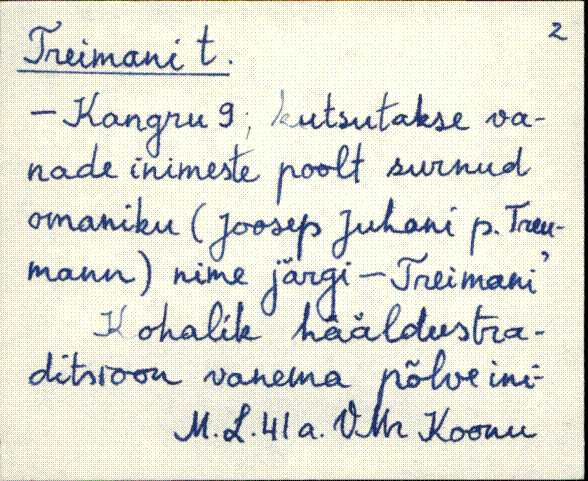 2
Treimani t.
– Kangru 9; kutsutakse va-
nade inimeste poolt surnud
omaniku (Joosep Juhani p. Treu-
mann) nime järgi – Treimani'
Kohalik hääldustra-
ditsioon vanema põlve ini-
M.L. 41 a. VMr Koonu